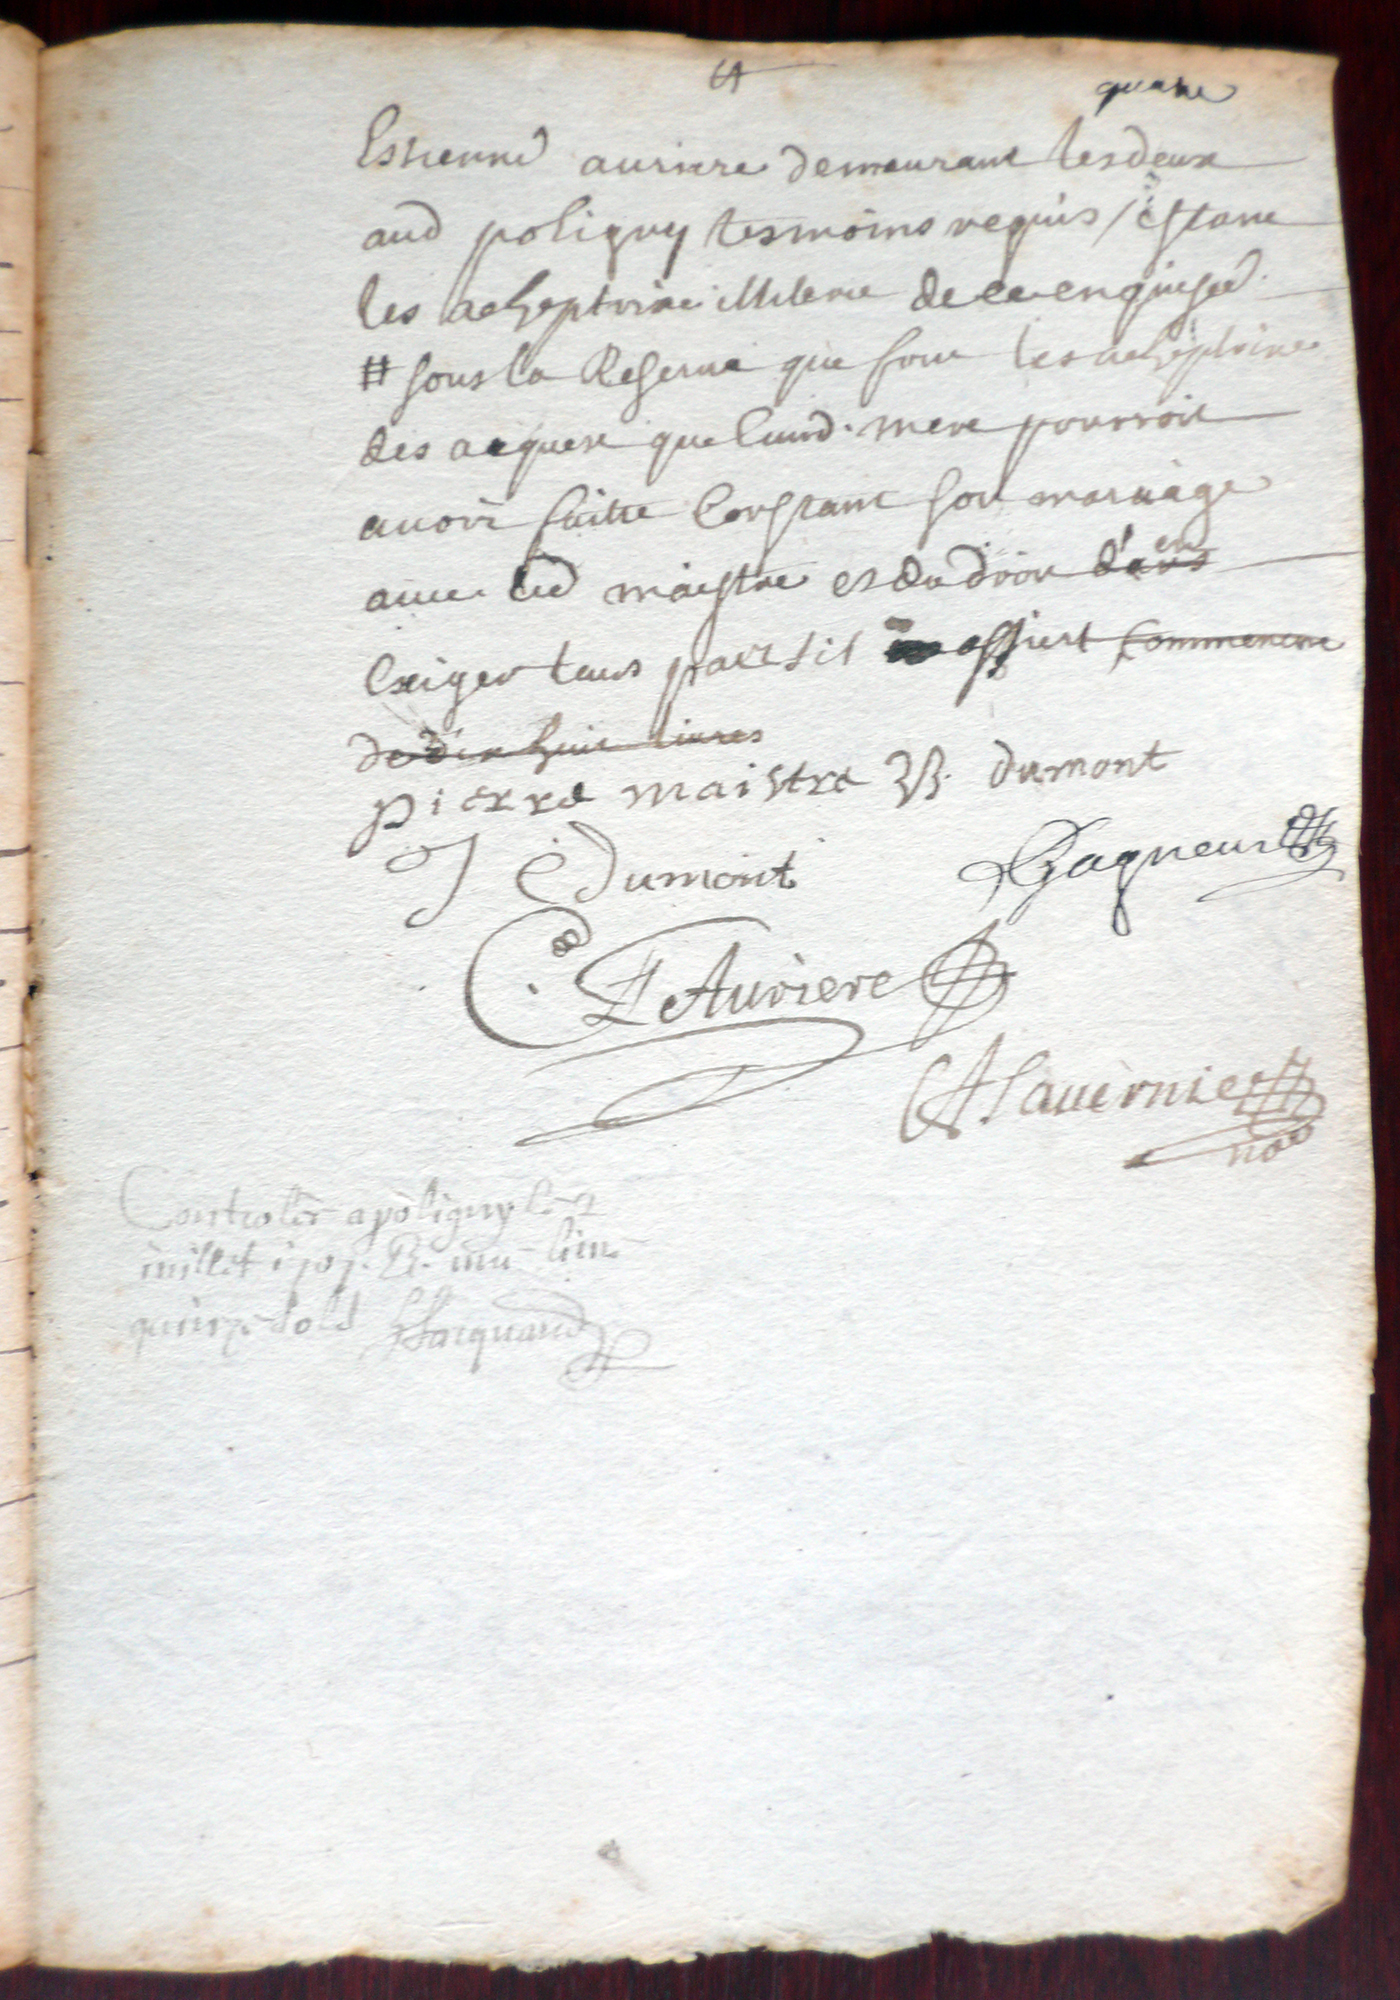 quatre
Estienne auriere demeurant les deux
aud poligny tesmoins requis / estant
les acheptrice illiterée de ce enquise
# sous la Reserve que font les acheptrice
des acquest que laud. mere pourroit
avoir faitte Constant son mariage
avec led maistre et du droit d'en
exiger leurs part sil affiert Commencent
de dix huit livres
pierre maistre dumont
J C Dumont
Gagneur
E Auriere
A Lavernier
not
Controlé a poligny le 9
juillet 1707. R. une livre
quinze sold Jacquand